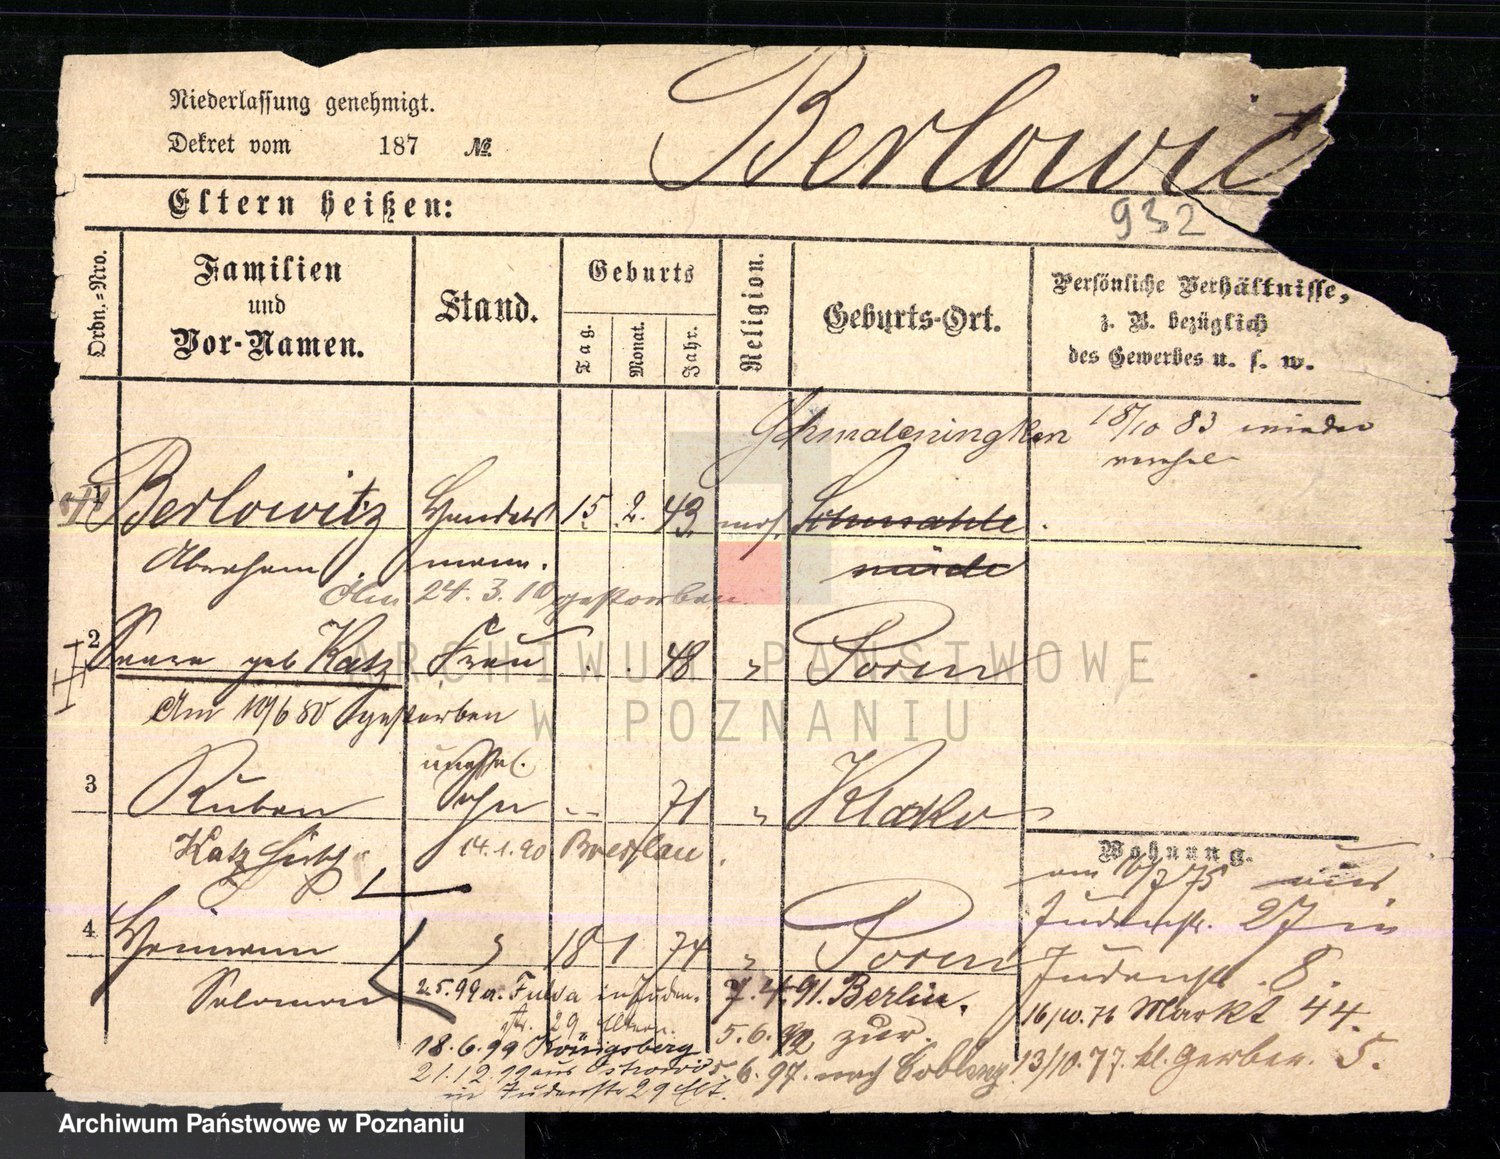 Niederlassung genehmigt.
Dekret vom 187 №
Berlowitz
932
Eltern heißen:
Ordn.=Nro.
Familien
und
Vor-Namen.
Stand.
Geburts
Tag.
Monat.
Jahr.
Religion.
Geburts-Ort.
Persönliche Verhältnisse,
z. B. bezüglich
des Gewerbes u. s. w.
Schmaleningken 18/10 83 wieder
1 Berlowitz Handels 15 2. 43 mos.
Abraham mann.
Am 24.3.10 gestorben
2 geb Katz Frau . . 48 " Posen
Am 10/6 80 gestorben
unehel.
3 Ruben Sohn -- 71 " Klecko
Katz 14.1.90 Breslau.
Wohnung.
am 10/7 75 aus
Judenstr. 27 in
4 Heimann 18 1 74 " Posen
Judenstr. 8.
Salomon
2.5.99 a. Fulda in Juden-
str. 29 Eltern.
7.4.91. Berlin.
16/10.76 Markt 44.
18.6.99 Königsberg
5.6.92 zur.
21.12.99 aus Ostrowo
5.6.97. nach Coblenz
13/10.77. kl. Gerber. 5.
in Judenstr 29 Elt.
ARCHIWUM PAŃSTWOWE
W POZNANIU
Archiwum Państwowe w Poznaniu